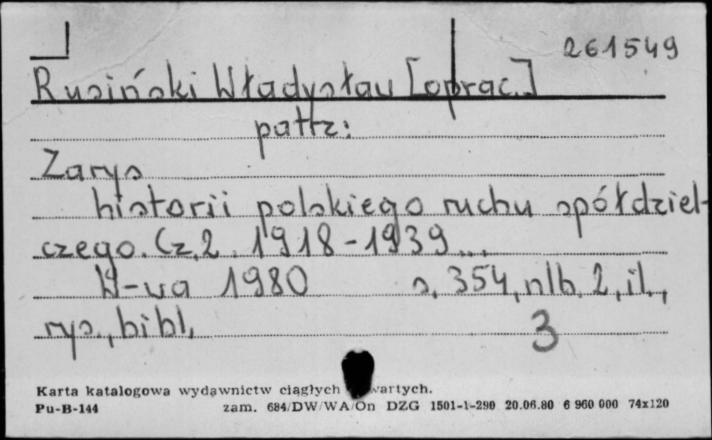 261549
Rusiński Władysław [oprac.]
patrz:
Zarys
historii polskiego ruchu spółdziel-
czego. Cz. 2. 1918-1939...
W-wa 1980 s. 354, nlb. 2, il.,
rys., bibl.
3
Karta katalogowa wydawnictw ciągłych
Pu-B-144 zam. 684/DW/WA/On DZG 1501-1-290 20.06.80 6 960 000 74x120